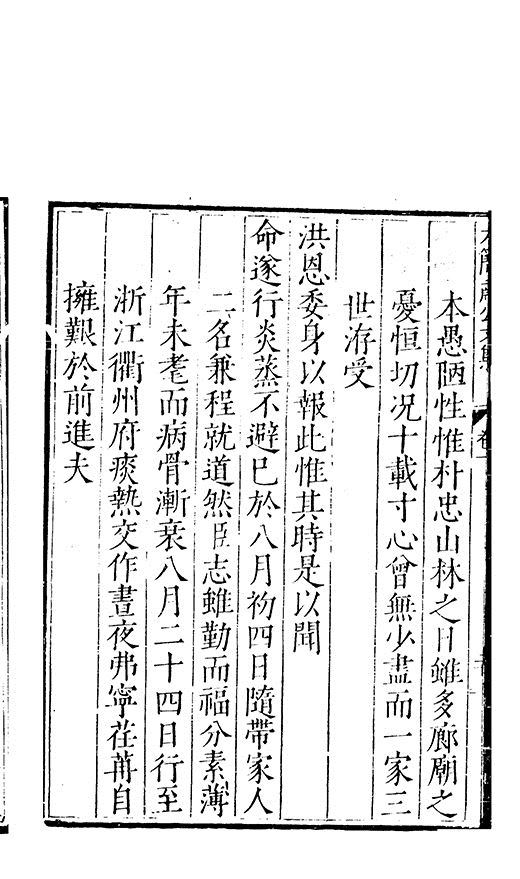 本愚陋性惟朴忠山林之日雖多廊廟之
憂恒切况十載寸心曾無少盡而一家三
世洊受
洪恩委身以報此惟其時是以聞
命遂行炎蒸不避已於八月初四日隨帶家人
二名兼程就道然臣志雖勤而福分素薄
年未耄而病骨漸衰八月二十四日行至
浙江衢州府痰熱交作晝夜弗寧荏苒自
擁艱於前進夫